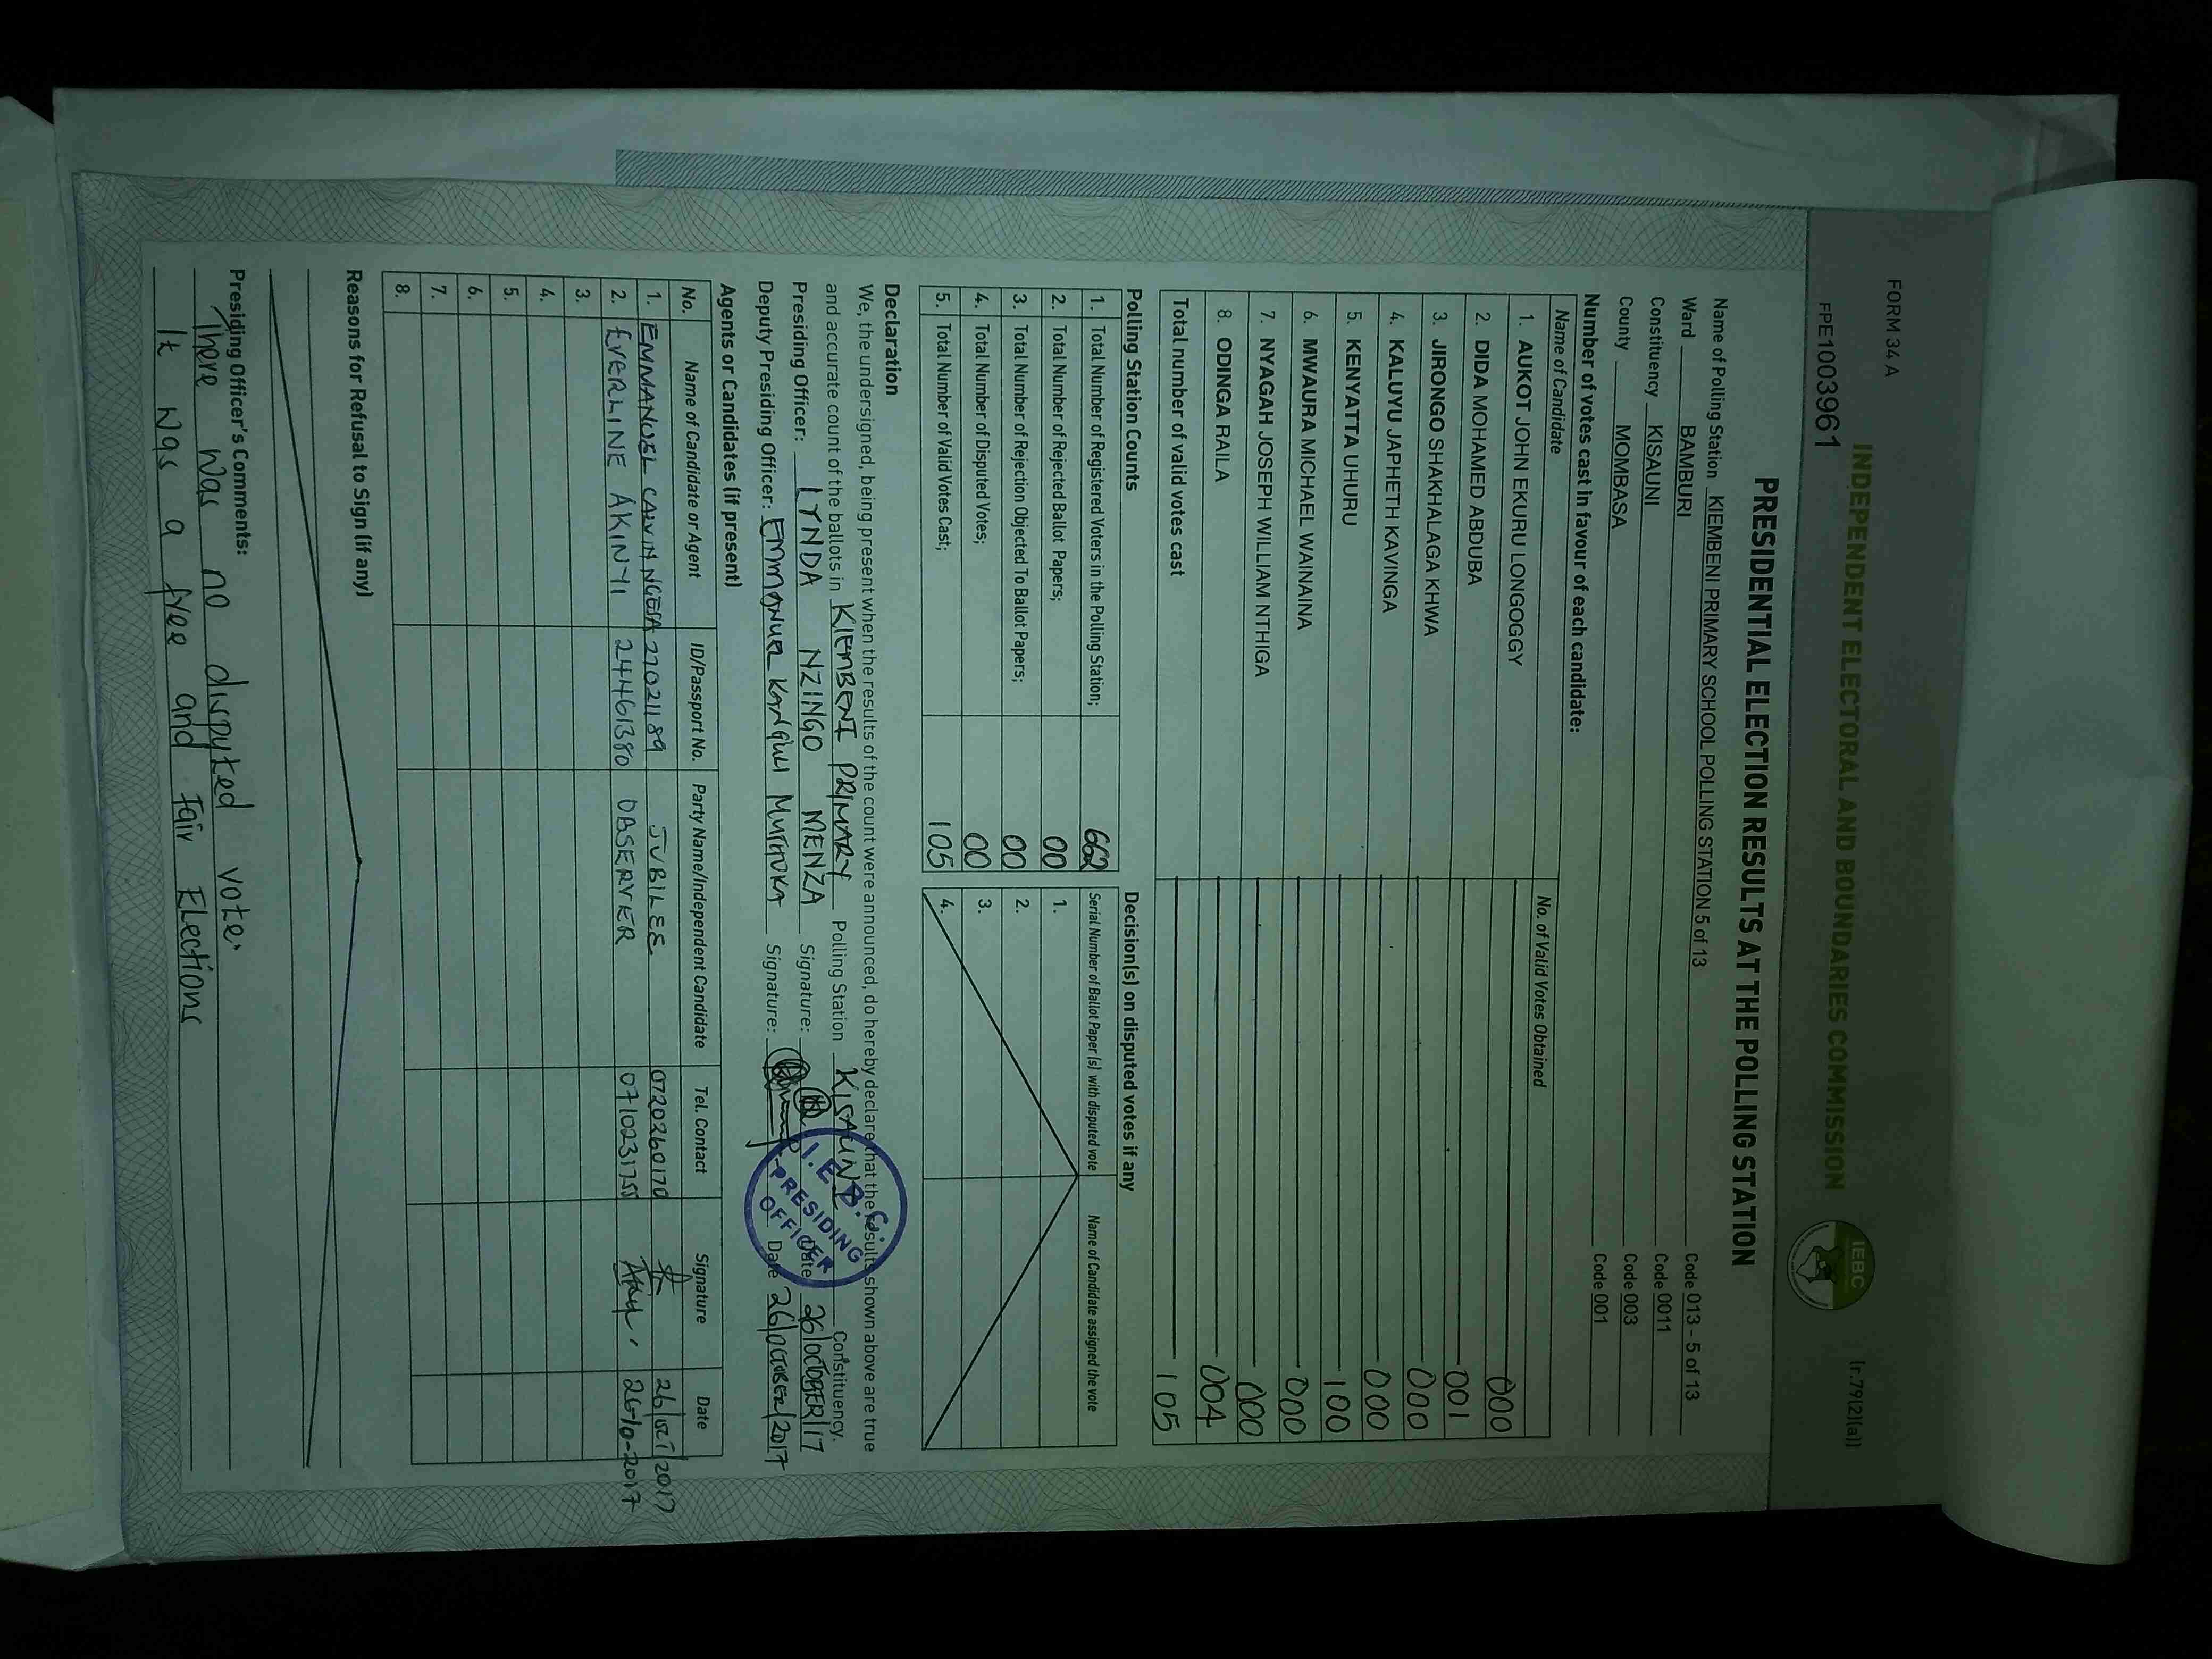 FORM 34 A
(r.79(2)(a))
INDEPENDENT ELECTORAL AND BOUNDARIES COMMISSION
IEBC
FPE1003961
PRESIDENTIAL ELECTION RESULTS AT THE POLLING STATION
Name of Polling Station KIEMBENI PRIMARY SCHOOL POLLING STATION 5 of 13 Code 013 - 5 of 13
Ward BAMBURI Code 0011
Constituency KISAUNI Code 003
County MOMBASA Code 001
Number of votes cast in favour of each candidate:
Name of Candidate No. of Valid Votes Obtained
1. AUKOT JOHN EKURU LONGOGGY 000
2. DIDA MOHAMED ABDUBA 001
3. JIRONGO SHAKHALAGA KHWA 000
4. KALUYU JAPHETH KAVINGA 000
5. KENYATTA UHURU 100
6. MWAURA MICHAEL WAINAINA 000
7. NYAGAH JOSEPH WILLIAM NTHIGA 000
8. ODINGA RAILA 004
Total number of valid votes cast 105
Polling Station Counts
1. Total Number of Registered Voters in the Polling Station; 662
2. Total Number of Rejected Ballot Papers; 00
3. Total Number of Rejection Objected To Ballot Papers; 00
4. Total Number of Disputed Votes; 00
5. Total Number of Valid Votes Cast; 105
Decision(s) on disputed votes if any
Serial Number of Ballot Paper (s) with disputed vote Name of Candidate assigned the vote
1.
2.
3.
4.
Declaration
We, the undersigned, being present when the results of the count were announced, do hereby declare that the results shown above are true
and accurate count of the ballots in KIEMBENI PRIMARY Polling Station KISAUNI Constituency.
Presiding Officer: LYNDA NZINGO MENZA Signature: Date 26/OCTOBER/17
Deputy Presiding Officer: EMMANUEL KANGULI MUTHOKA Signature: Date 26/OCTOBER/2017
I.E.B.C.
PRESIDING
OFFICER
Agents or Candidates (if present)
No. Name of Candidate or Agent ID/Passport No. Party Name/Independent Candidate Tel. Contact Signature Date
1. EMMANUEL CALVIN 27021189 JUBILEE 0720260170 26/OCT/2017
2. EVERLINE AKINYI 24461380 OBSERVER 0710231755 26-10-2017
3.
4.
5.
6.
7.
8.
Reasons for Refusal to Sign (if any)
Presiding Officer's Comments:
There was no disputed vote.
It was a free and Fair Elections